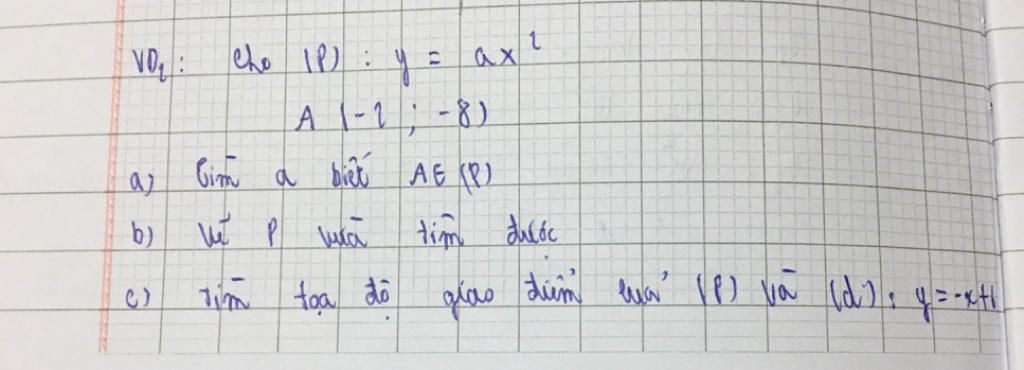 VD2: Cho (P): y = ax²
A (-2; -8)
a) Tìm a biết A∈(P)
b) Vẽ P vừa tìm được
c) Tìm tọa độ giao điểm của (P) và (d): y = -x+1